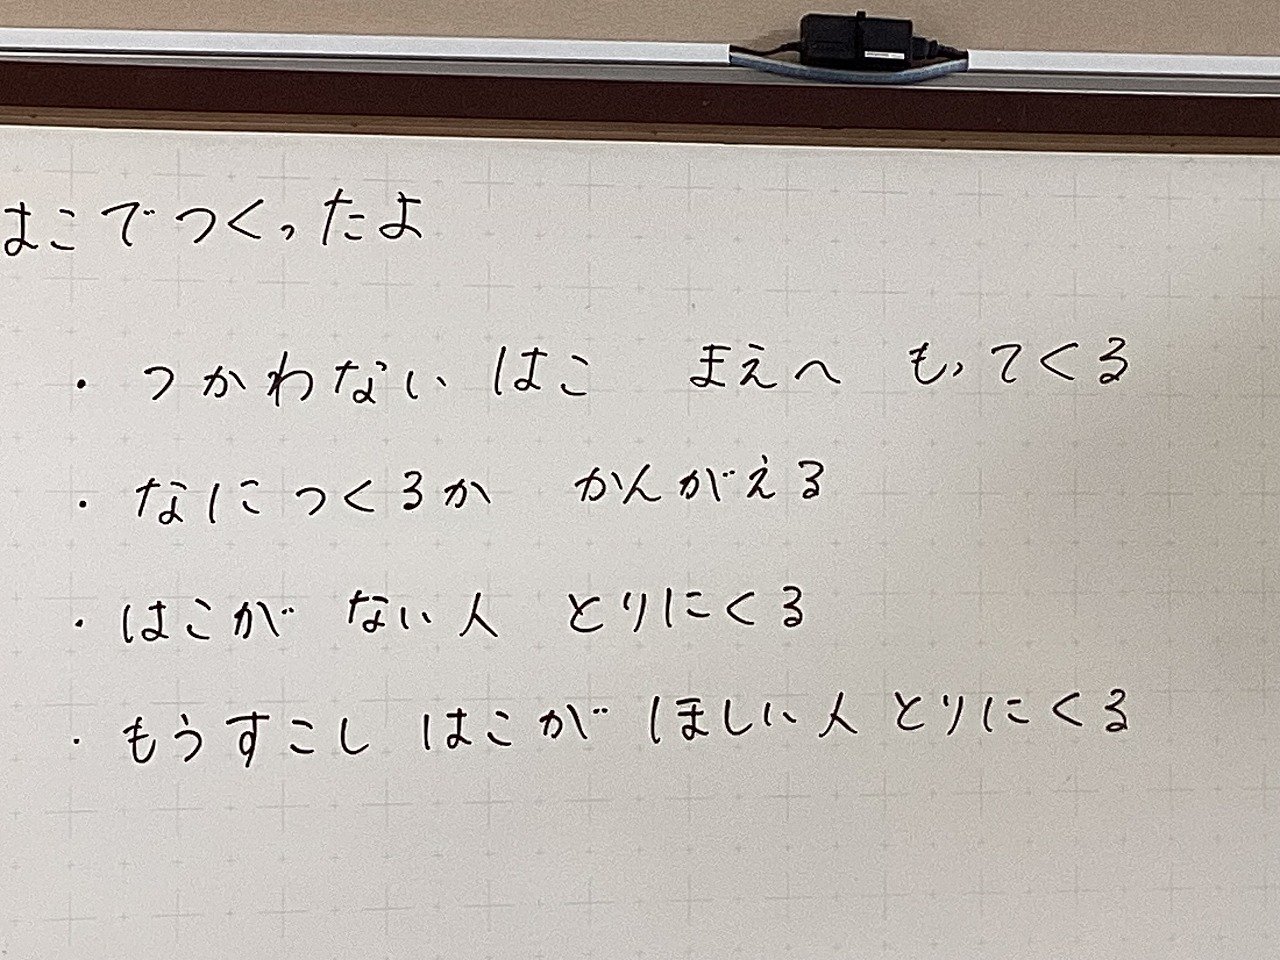 はこでつくったよ
・ つかわない はこ まえへ もってくる
・ なにつくるか かんがえる
・ はこが ない人 とりにくる
・ もうすこし はこが ほしい人 とりにくる